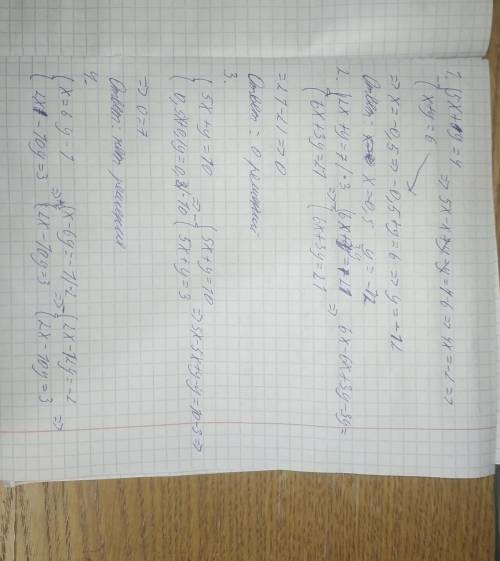 1. { 5x+y=4
{ x+y=6 ⇒ 5x-x+y-y=4-6 ⇒ 4x=-2 ⇒
⇒ x=-0,5 ⇒ -0,5+y=6 ⇒ y=
Ответ x=-0,5
2. { 2x+y=7 |·3
{ 6x+3y=21 ⇒ { 6x+3y=21 ⇒ 6x-6x+3y-3y=
=21-21 ⇒ 0
Ответ: решений
3.
{ 5x+y=10
|·10 { 5x+y=10
{ 5x+y=3 ⇒ 5x-5x+y-y=10-3 ⇒
⇒ 0=7
Ответ: нет решений
4.
{ x=6y-1
{ 2x-10y=3 ⇒ { x-6y=-1 |·2
{ 2x-10y=3 ⇒ { 2x-12y=-2
{ 2x-10y=3 ⇒